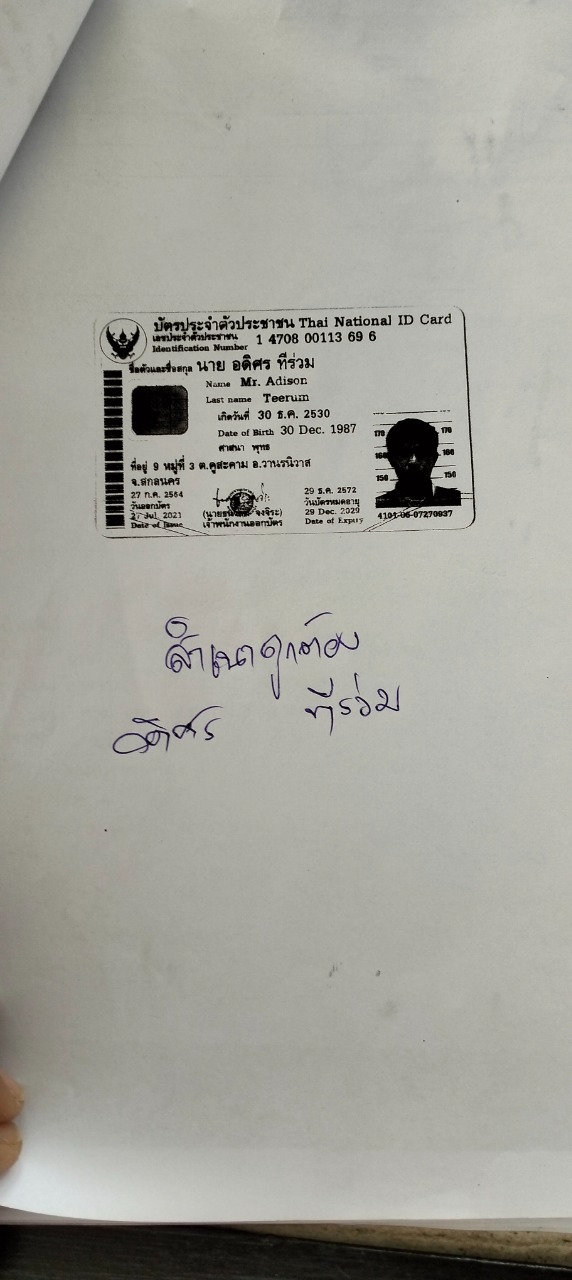 บัตรประจำตัวประชาชน Thai National ID Card
เลขประจำตัวประชาชน
Identification Number 1 4708 00113 69 6
ชื่อตัวและชื่อสกุล นาย อดิศร ทีร่วม
Name Mr. Adison
Last name Teerum
เกิดวันที่ 30 ธ.ค. 2530
Date of Birth 30 Dec. 1987
ศาสนา พุทธ
ที่อยู่ 9 หมู่ที่ 3 ต.คูสะคาม อ.วานรนิวาส
จ.สกลนคร
27 ก.ค. 2564
วันออกบัตร
27 Jul. 2021
Date of Issue
เจ้าพนักงานออกบัตร
29 ธ.ค. 2572
วันบัตรหมดอายุ
29 Dec. 2029
Date of Expiry
170 170
160 160
150 150
4101-06-07270937
สำเนาถูกต้อง
อดิศร ทีร่วม